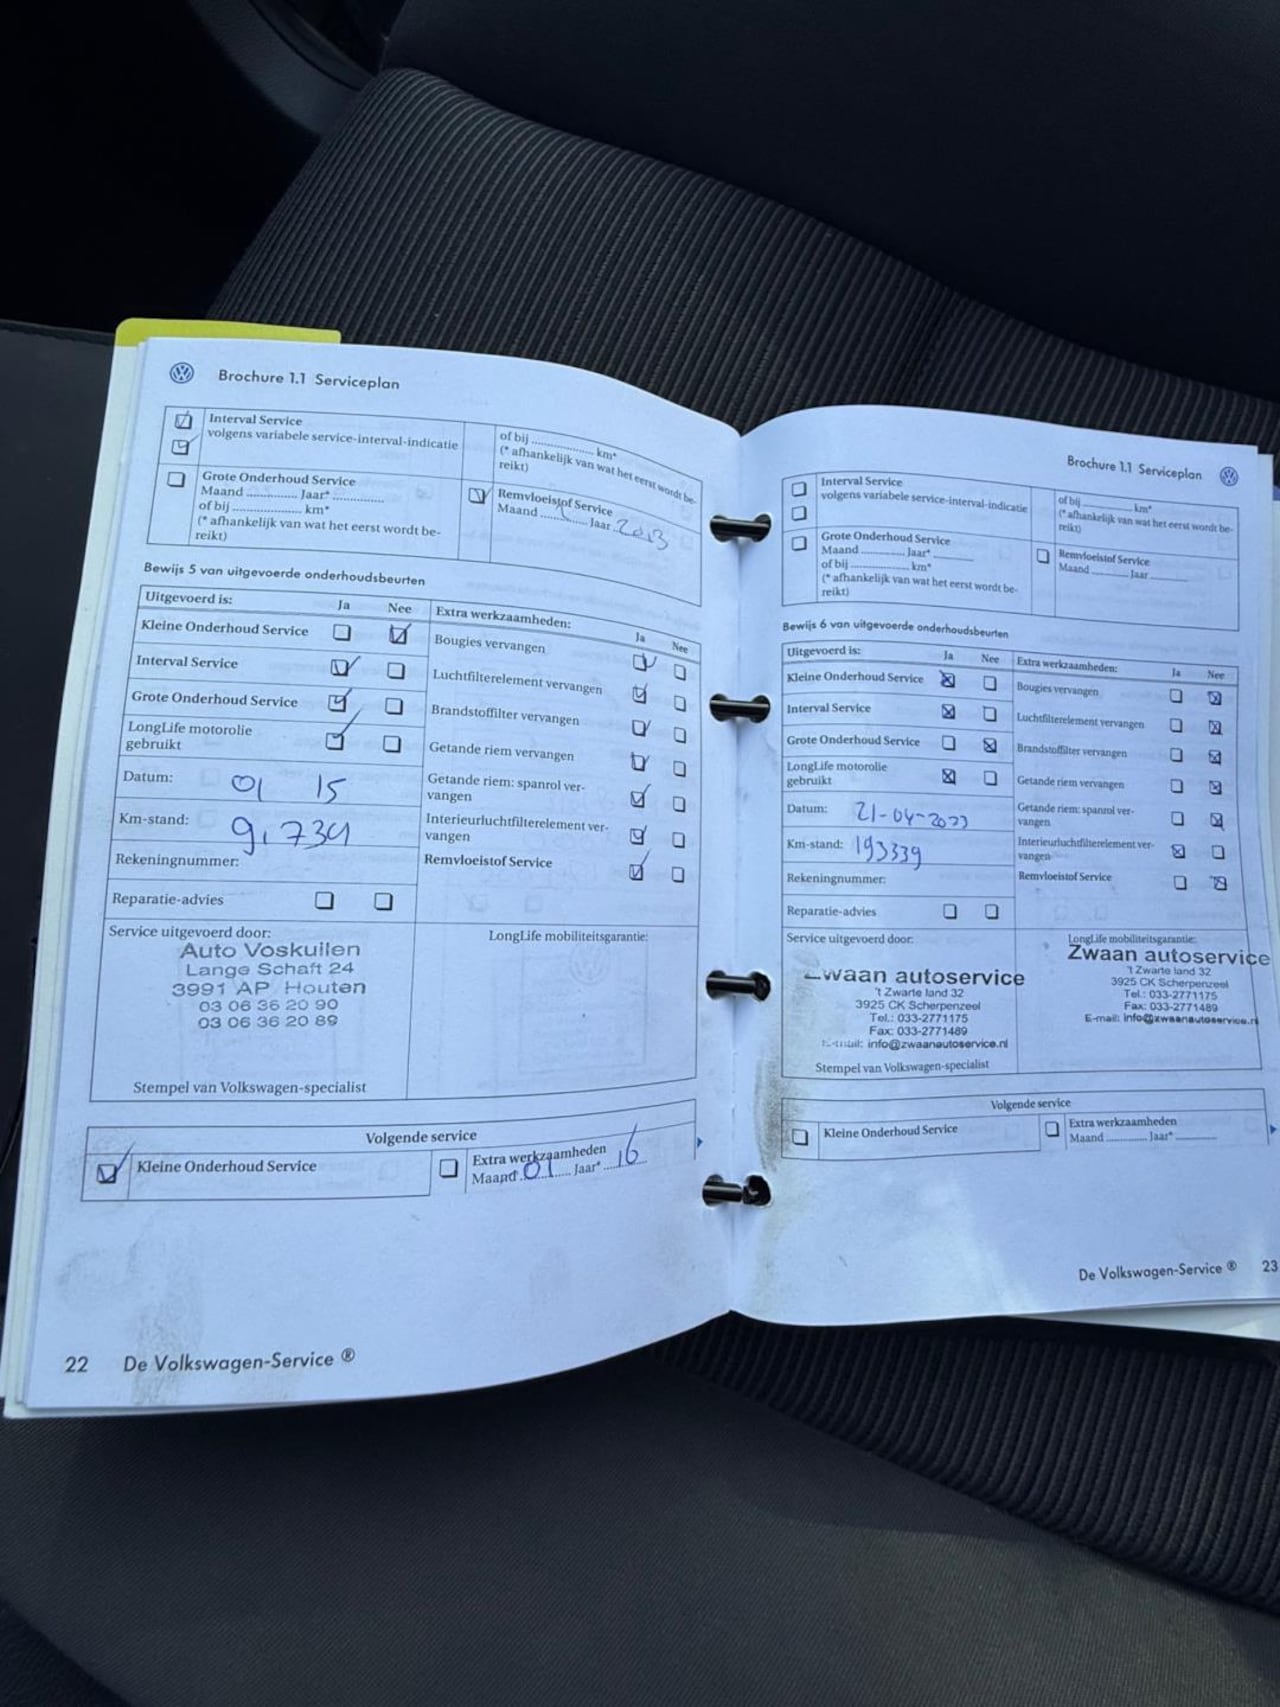 Brochure 1.1 Serviceplan
Interval Service
volgens variabele service-interval-indicatie
of bij .................. km*
(* afhankelijk van wat het eerst wordt be-
reikt)
Grote Onderhoud Service
Maand .............. Jaar* ..............
of bij ................... km*
(* afhankelijk van wat het eerst wordt be-
reikt)
Remvloeistof Service
Maand ............. Jaar 2013
Bewijs 5 van uitgevoerde onderhoudsbeurten
Uitgevoerd is: Ja Nee
Kleine Onderhoud Service
Interval Service
Grote Onderhoud Service
LongLife motorolie
gebruikt
Datum: 01 15
Km-stand: 91734
Rekeningnummer:
Reparatie-advies
Extra werkzaamheden: Ja Nee
Bougies vervangen
Luchtfilterelement vervangen
Brandstoffilter vervangen
Getande riem vervangen
Getande riem: spanrol ver-
vangen
Interieurluchtfilterelement ver-
vangen
Remvloeistof Service
Service uitgevoerd door:
Auto Voskuilen
Lange Schaft 24
3991 AP Houten
03 06 36 20 90
03 06 36 20 89
Stempel van Volkswagen-specialist
LongLife mobiliteitsgarantie:
Volgende service
Kleine Onderhoud Service
Extra werkzaamheden
Maand 01 Jaar* 16
22 De Volkswagen-Service ®
Brochure 1.1 Serviceplan
Interval Service
volgens variabele service-interval-indicatie
of bij .................. km*
(* afhankelijk van wat het eerst wordt be-
reikt)
Grote Onderhoud Service
Maand .............. Jaar* ..............
of bij ................... km*
(* afhankelijk van wat het eerst wordt be-
reikt)
Remvloeistof Service
Maand ............. Jaar .............
Bewijs 6 van uitgevoerde onderhoudsbeurten
Uitgevoerd is: Ja Nee
Kleine Onderhoud Service
Interval Service
Grote Onderhoud Service
LongLife motorolie
gebruikt
Datum: 21-04-2023
Km-stand: 193339
Rekeningnummer:
Reparatie-advies
Extra werkzaamheden: Ja Nee
Bougies vervangen
Luchtfilterelement vervangen
Brandstoffilter vervangen
Getande riem vervangen
Getande riem: spanrol ver-
vangen
Interieurluchtfilterelement ver-
vangen
Remvloeistof Service
Service uitgevoerd door:
Zwaan autoservice
't Zwarte land 32
3925 CK Scherpenzeel
Tel.: 033-2771175
Fax: 033-2771489
E-mail: info@zwaanautoservice.nl
Stempel van Volkswagen-specialist
LongLife mobiliteitsgarantie:
Zwaan autoservice
't Zwarte land 32
3925 CK Scherpenzeel
Tel.: 033-2771175
Fax: 033-2771489
E-mail: info@zwaanautoservice.nl
Volgende service
Kleine Onderhoud Service
Extra werkzaamheden
Maand ............. Jaar* .............
De Volkswagen-Service ® 23